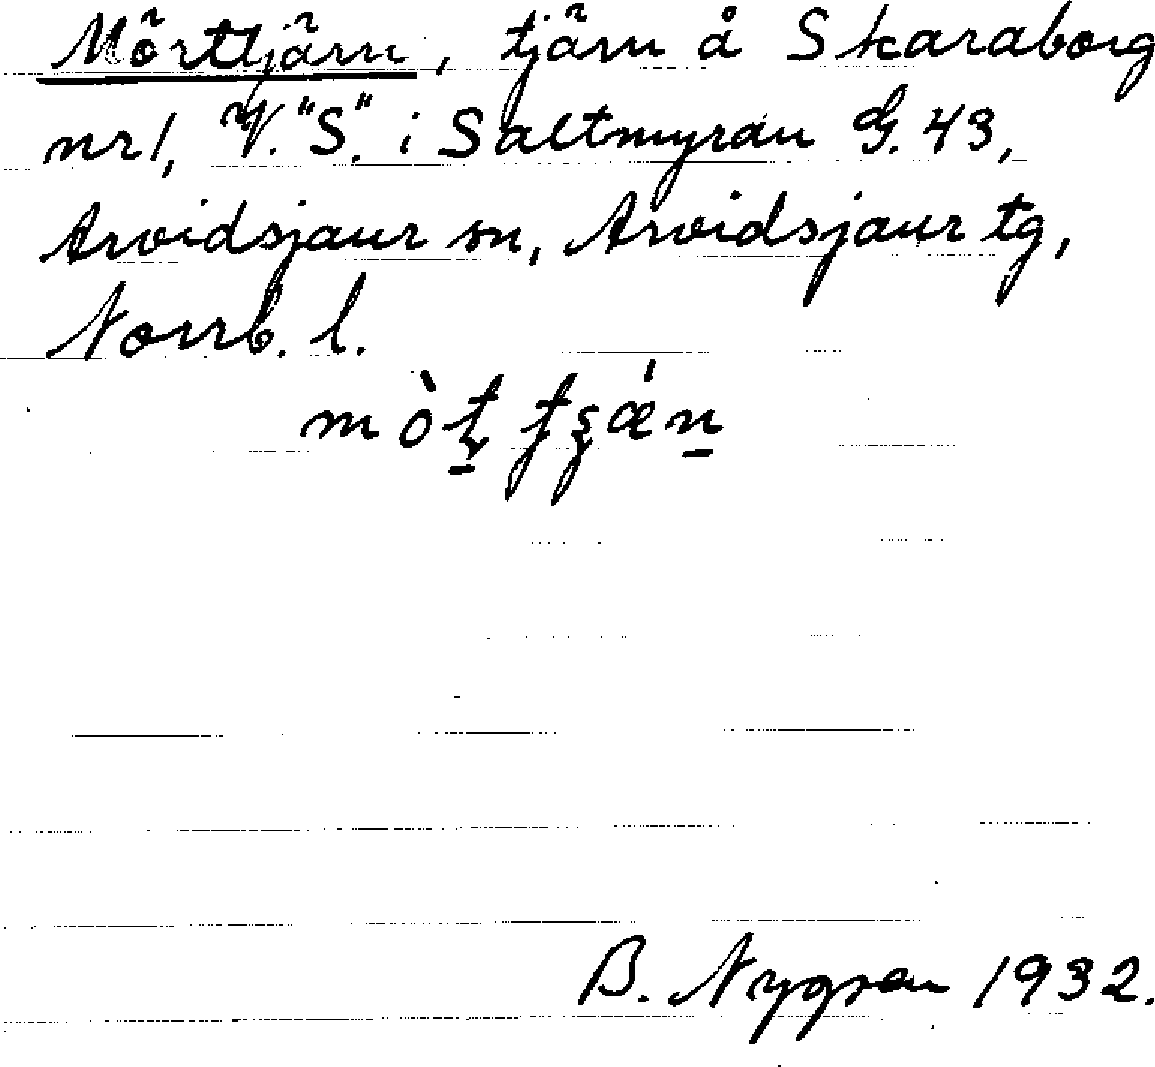 Mörttjärn, tjärn å Skaraborg
nr 1, V. "S". i Saltmyran G. 43,
Arvidsjaur sn, Arvidsjaur tg,
Norrb. l.
B. Nygren 1932.